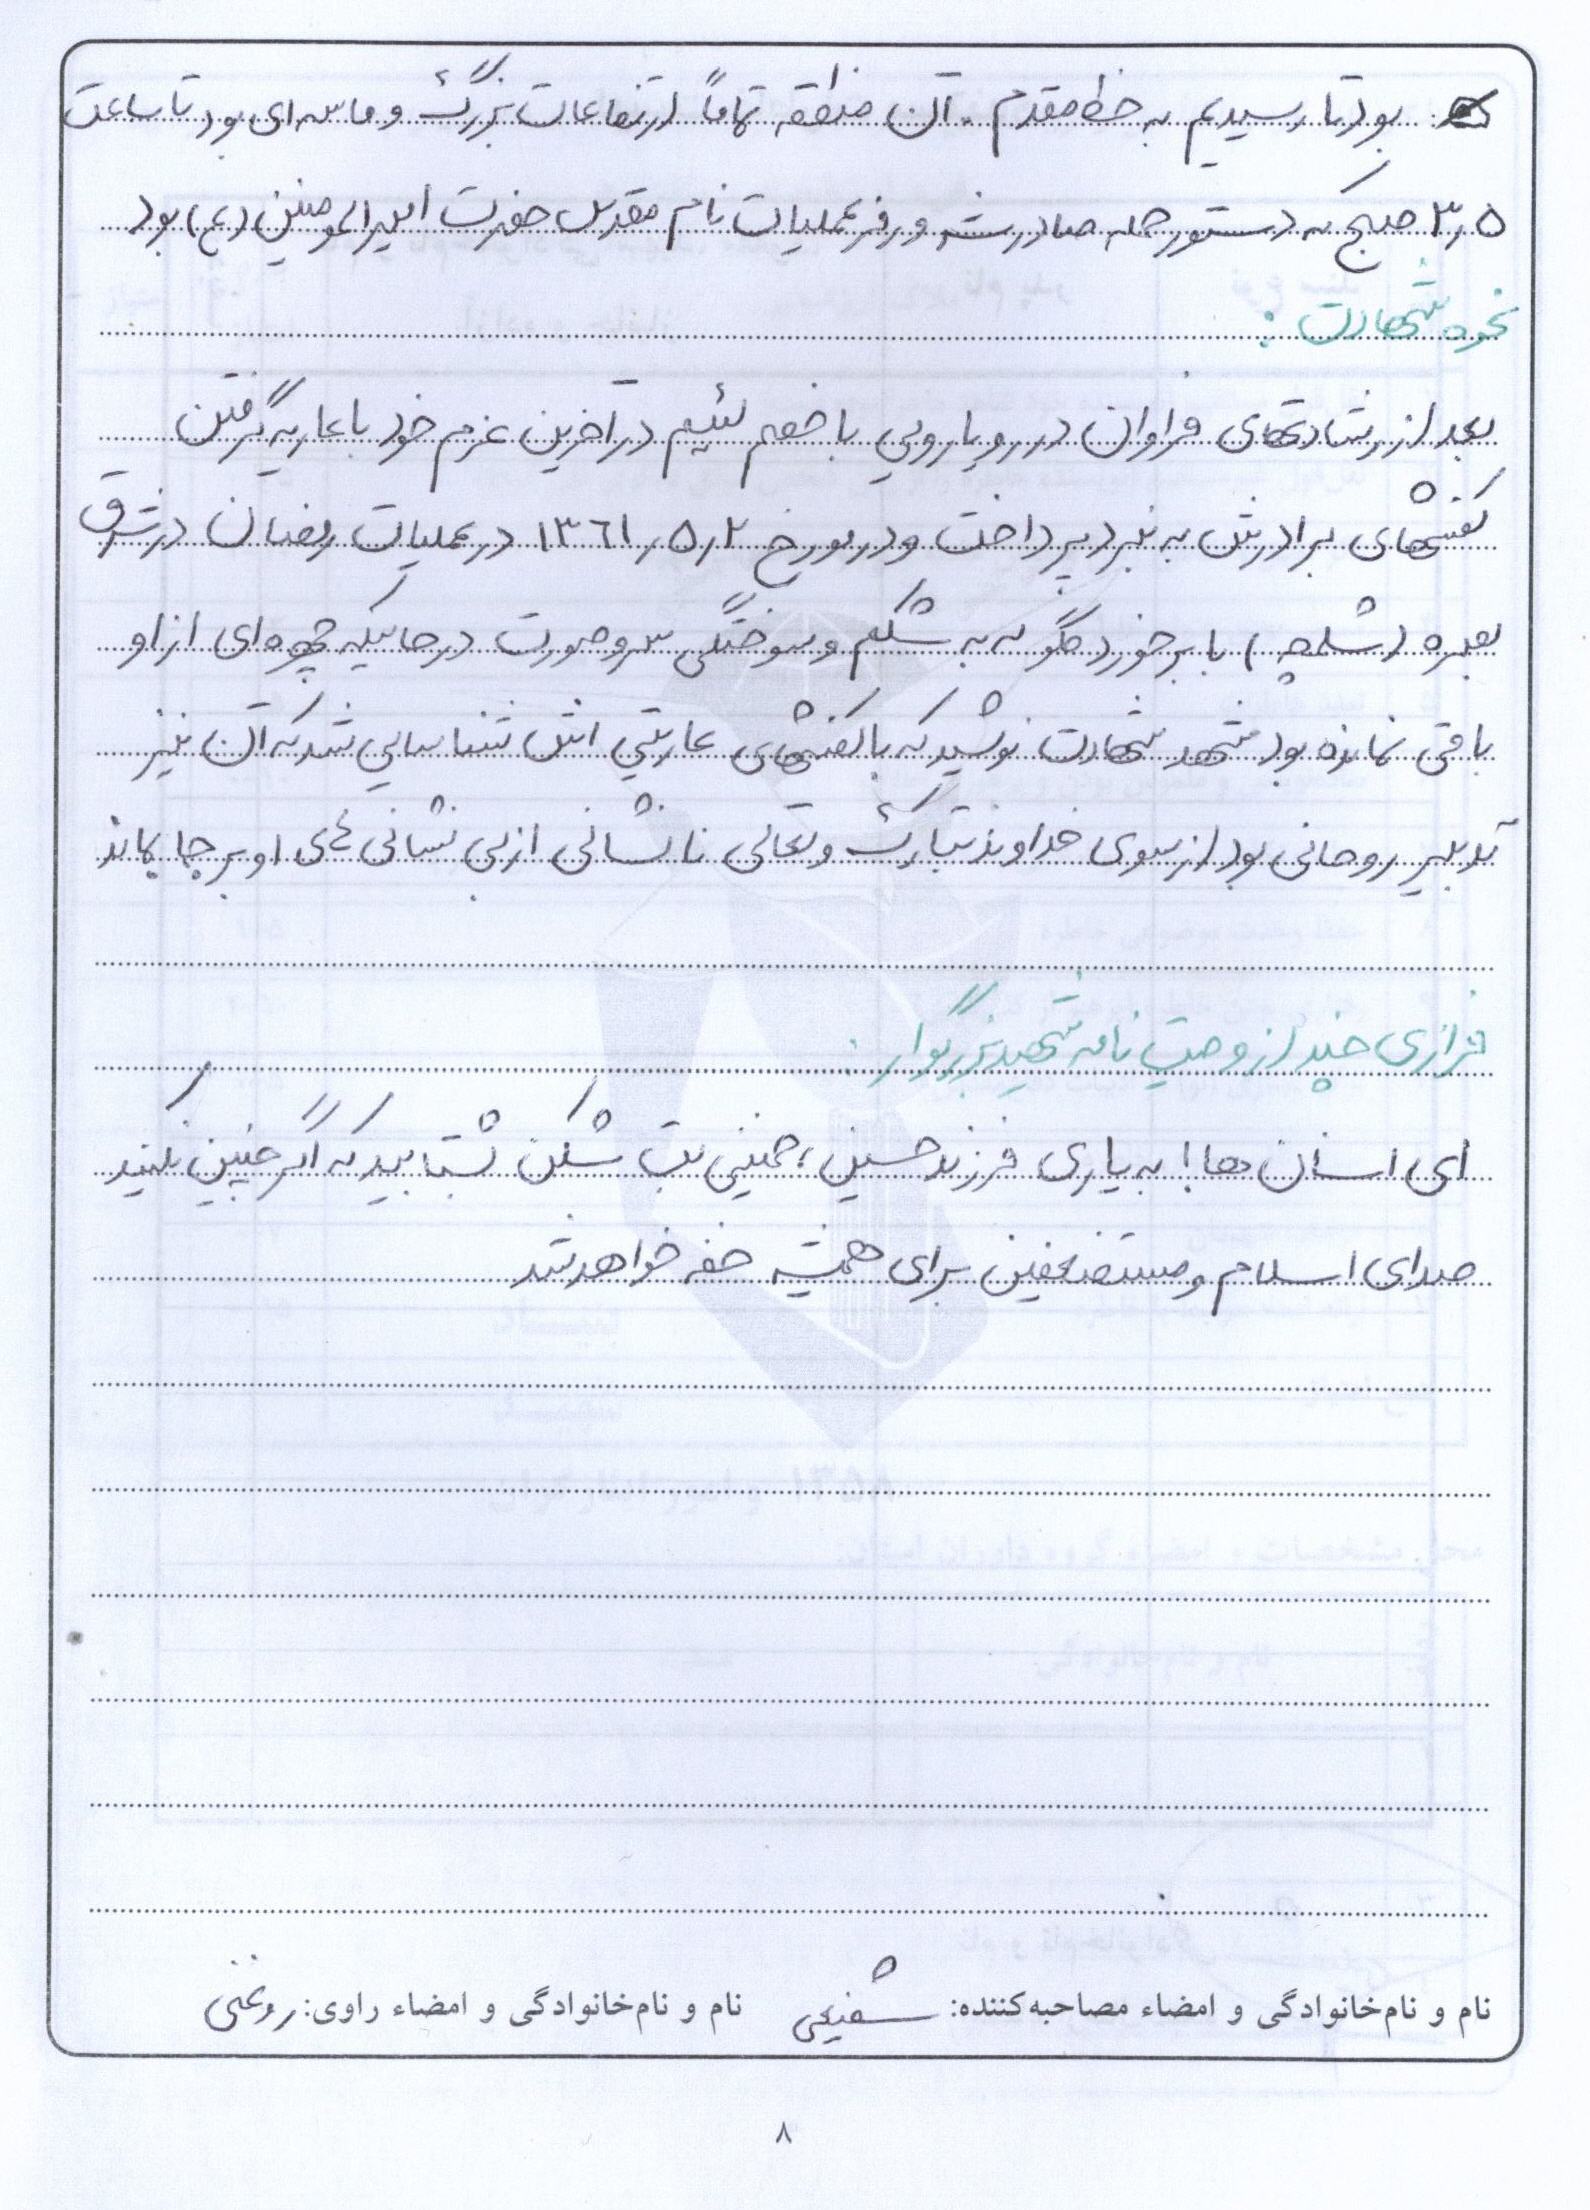 بود تا رسیدیم به خط مقدم. آن منطقه تماماً ارتفاعات بزرگ و ماسه ای بود تا ساعت
۳٫۵ صبح که دستور حمله صادر شد و رمز عملیات نام مقدس حضرت امیرالمومنین (ع) بود
نحوه شهادت :
بعد از رشادتهای فراوان در رویارویی با خصم لئیم در آخرین عزم خود با عاریه گرفتن
کفشهای برادرش به نبرد پرداخت و در مورخ ۱۳۶۱٫۵٫۲ در عملیات رمضان در شرق
بصره (شلمچه) با برخورد گلوله به شکم و سوختگی سر و صورت در حالیکه چهره ای از او
باقی نمانده بود شهد شهادت نوشید که با کفشهای عاریتی اش شناسایی شد که آن نیز
تدبیر روحانی بود از سوی خداوند تبارک و تعالی تا نشانی از بی نشانی های او بر جا بماند
فرازی چند از وصیت نامه شهید بزرگوار :
ای انسان ها! به یاری فرزند حسین، خمینی بت شکن بشتابید که اگر چنین نکنید
صدای اسلام و مستضعفین برای همیشه خفه خواهد شد
نام و نام‌خانوادگی و امضاء مصاحبه‌کننده: شفیعی نام و نام‌خانوادگی و امضاء راوی: روغنی
۸